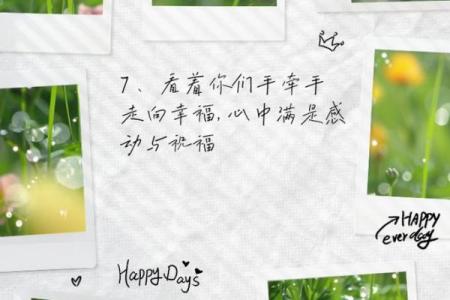 7、看着你们手牵手
走向幸福,心中满是感
动与祝福
HAPPY
everday
HAPPY DAys